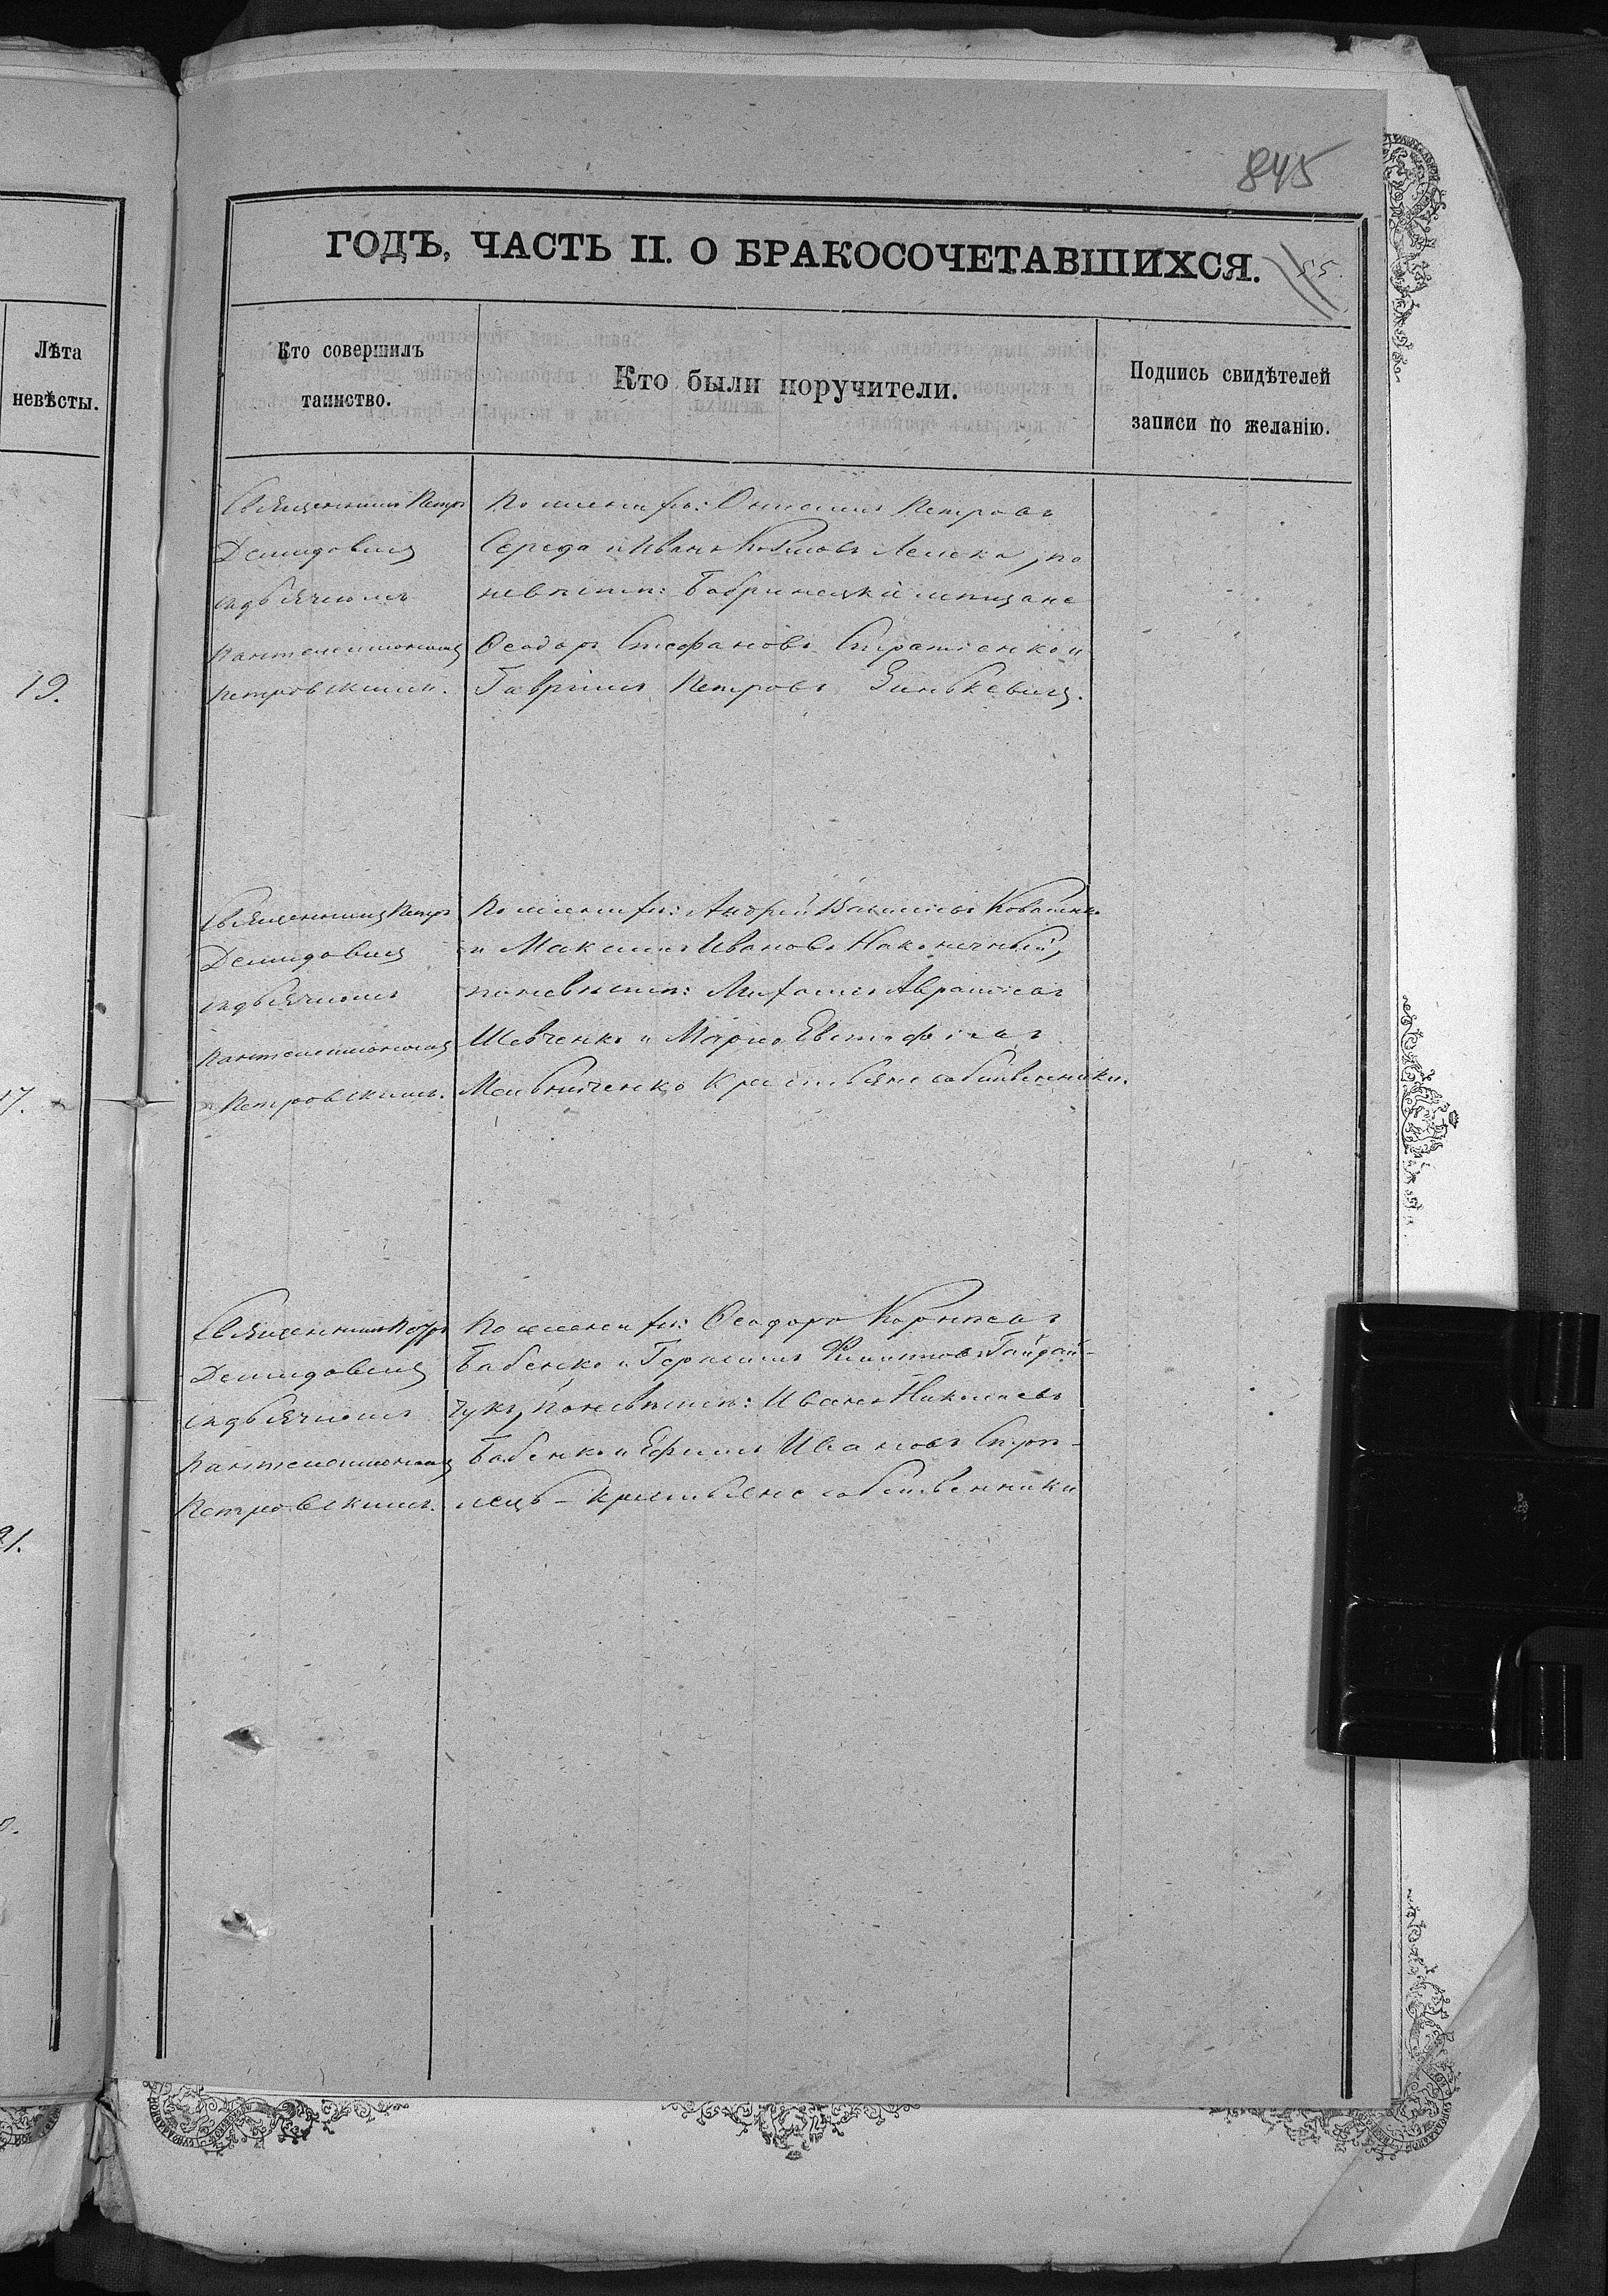 845
ГОДЪ, ЧАСТЬ II. О БРАКОСОЧЕТАВШИХСЯ.
55.
Лѣта
невѣсты.
Кто совершилъ
таинство.
Кто были поручители.
Подпись свидѣтелей
записи по желанію.
19.
Священникъ Петръ
Демидовичъ
съ дьячкомъ
Пантелеимономъ
Петровскимъ.
По женихѣ: Петровъ
Середа и Иванъ по
невѣстѣ: Бобринецкіе мѣщане
Ѳеодоръ Стефановъ и
Гавріилъ Петровъ Зинькевичъ.
17.
Священникъ Петръ
Демидовичъ
съ дьячкомъ
Пантелеимономъ
Петровскимъ.
По женихѣ: Андрей
и Максимъ Ивановъ Наконечный,
по невѣстѣ: Авраміевъ
Шевченко и Марко Евстафіевъ
Мельниченко крестьяне собственники.
21.
Священникъ Петръ
Демидовичъ
съ дьячкомъ
Пантелеимономъ
Петровскимъ.
По женихѣ: Ѳеодоръ Корнѣевъ
Бабенко и Герасимъ Филипповъ Гайдай-
чукъ, по невѣстѣ: Иванъ Николаевъ
Бабенко и Ефимъ Ивановъ Стрѣ-
лецъ – крестьяне собственники